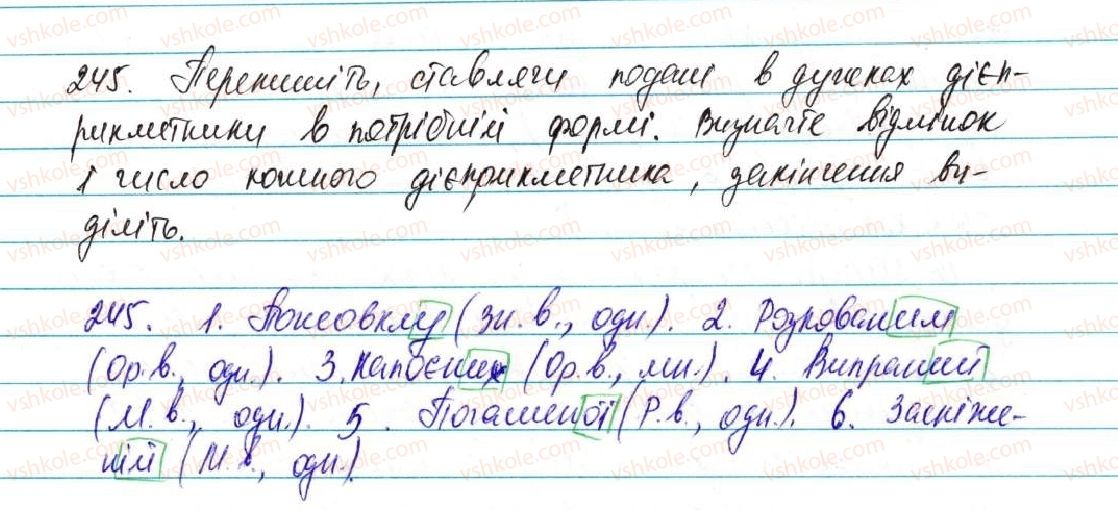 245. Перепишіть, ставлячи подані в дужках дієп-
рикметники в потрібній формі. Визначте відмінок
і число кожного дієприкметника, закінчення ви-
діліть.
245. 1. Пожовклу (Зн. в., одн.). 2. Розкованим
(Ор. в., одн.). 3. Напоєних (Ор. в., мн.). 4. Випраний
(М. в., одн.). 5. Погашеної (Р. в., одн.). 6. Засніже-
ній (М. в., одн.).
vshkole.com